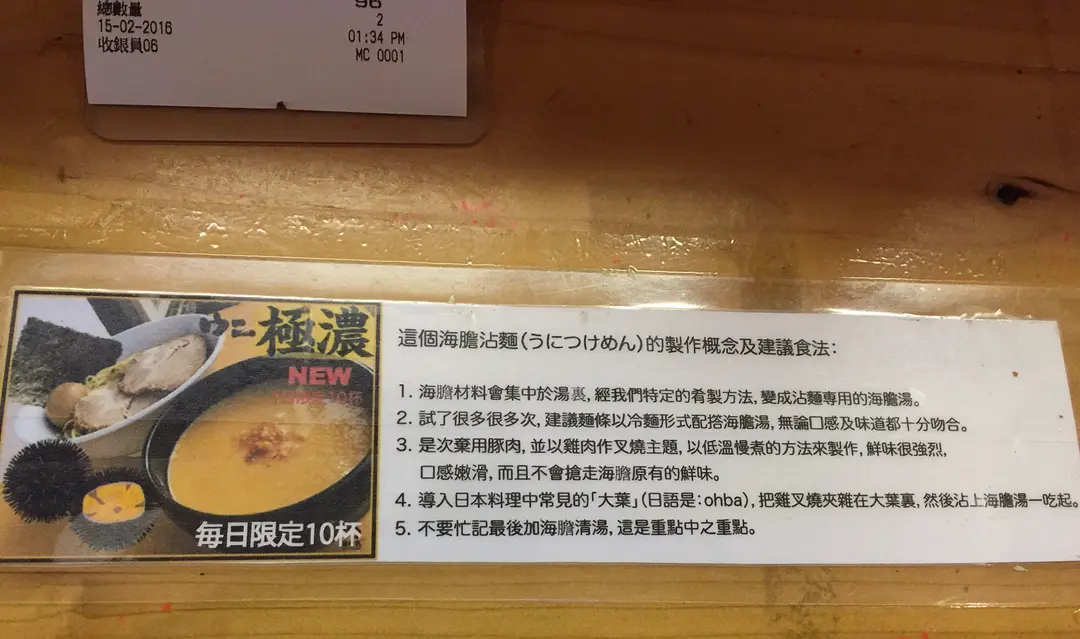 總數量 2
15-02-2016 01:34 PM
收銀員06 MC 0001
ウニ極濃
NEW
毎日限定10杯
這個海膽沾麵(うにつけめん)的製作概念及建議食法:
1. 海膽材料會集中於湯裏, 經我們特定的肴製方法, 變成沾麵專用的海膽湯。
2. 試了很多很多次, 建議麵條以冷麵形式配搭海膽湯, 無論口感及味道都十分吻合。
3. 是次棄用豚肉, 並以雞肉作叉燒主題, 以低溫慢煮的方法來製作, 鮮味很強烈,
口感嫩滑, 而且不會搶走海膽原有的鮮味。
4. 導入日本料理中常見的「大葉」(日語是: ohba), 把雞叉燒夾雜在大葉裏, 然後沾上海膽湯一吃起。
5. 不要忙記最後加海膽清湯, 這是重點中之重點。